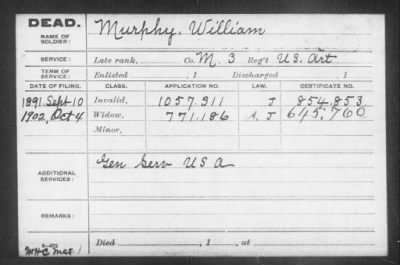 DEAD.
NAME OF SOLDIER: Murphy. William
SERVICE: Late rank, Co. M. 3 Reg't U.S. Art
TERM OF SERVICE: Enlisted , 1 Discharged , 1
DATE OF FILING. CLASS. APPLICATION NO. LAW. CERTIFICATE NO.
1891, Sept 10 Invalid, 1057.311 J 854.853
1902, Oct 4 Widow, 771.186 A. J 645,760
Minor,
ADDITIONAL SERVICES: Gen Serv U S A
REMARKS:
Died , 1 , at